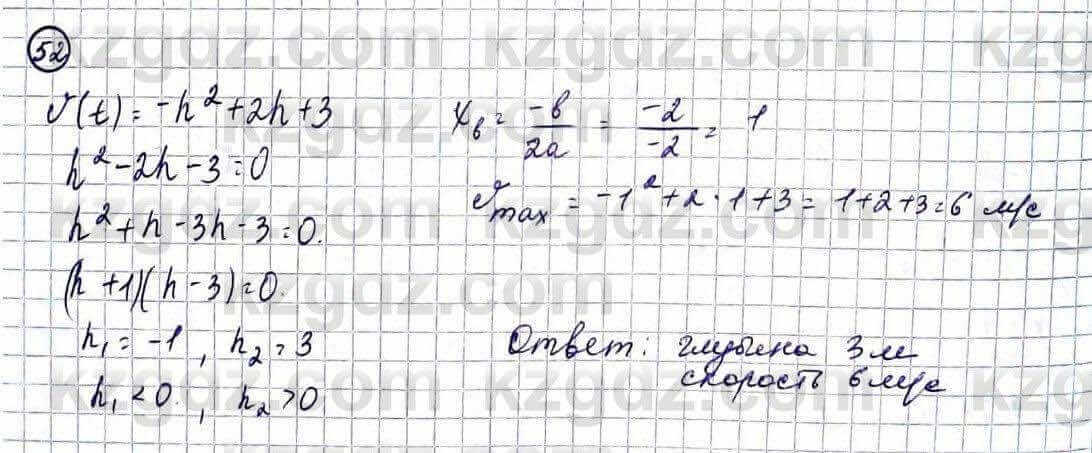 52
v(t) = -h² + 2h + 3
h² - 2h - 3 = 0
h² + h - 3h - 3 = 0.
(h + 1)(h - 3) = 0.
h₁ = -1 , h₂ = 3
h₁ < 0. , h₂ > 0
x_в = -b/2a = -2/-2 = 1
v_max = -1² + 2 · 1 + 3 = 1 + 2 + 3 = 6 м/с
Ответ: глубина 3 м
скорость 6 м/с
kzgdz.com